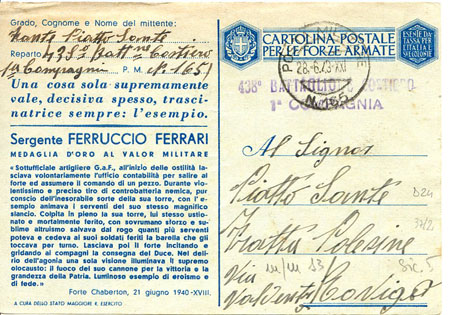 Grado, Cognome e Nome del mittente:
Sante
Reparto 438º Batt.ne Costiero
1ª Compagnia P. M. Nº 165
Una cosa sola supremamente
vale, decisiva spesso, trasci-
natrice sempre: l'esempio.
Sergente FERRUCCIO FERRARI
MEDAGLIA D'ORO AL VALOR MILITARE
« Sottufficiale artigliere G.a.F., all'inizio delle ostilità la-
sciava volontariamente l'ufficio contabilità per salire al
forte ed assumere il comando di un pezzo. Durante vio-
lentissimo e preciso tiro di controbatteria nemica, pur
conscio dell'inesorabile sorte della sua torre, con l'e-
sempio animava i serventi del suo stesso magnifico
slancio. Colpita in pieno la sua torre, lui stesso ustio-
nato e mortalmente ferito, con sovrumano sforzo e su-
blime altruismo salvava dal rogo quanti più serventi
poteva e cedeva ai suoi soldati feriti la barella che gli
toccava per turno. Lasciava poi il forte incitando e
gridando ai compagni la consegna del Duce. Nel deli-
rio dell'agonia una sola visione illuminava il supremo
olocausto: il fuoco del suo cannone per la vittoria e la
grandezza della Patria. Luminoso esempio di eroismo e
di fede. »
Forte Chaberton, 21 giugno 1940-XVIII.
A CURA DELLO STATO MAGGIORE R. ESERCITO
CARTOLINA POSTALE
PER LE FORZE ARMATE
28-6.43-XXI
N. 165
438º BATTAGLIONE COSTIERO
1ª COMPAGNIA
Al Signor
Sante
D24
Fratta Polesine
37/2
Via m/m 13
Sic. 5
Rovigo